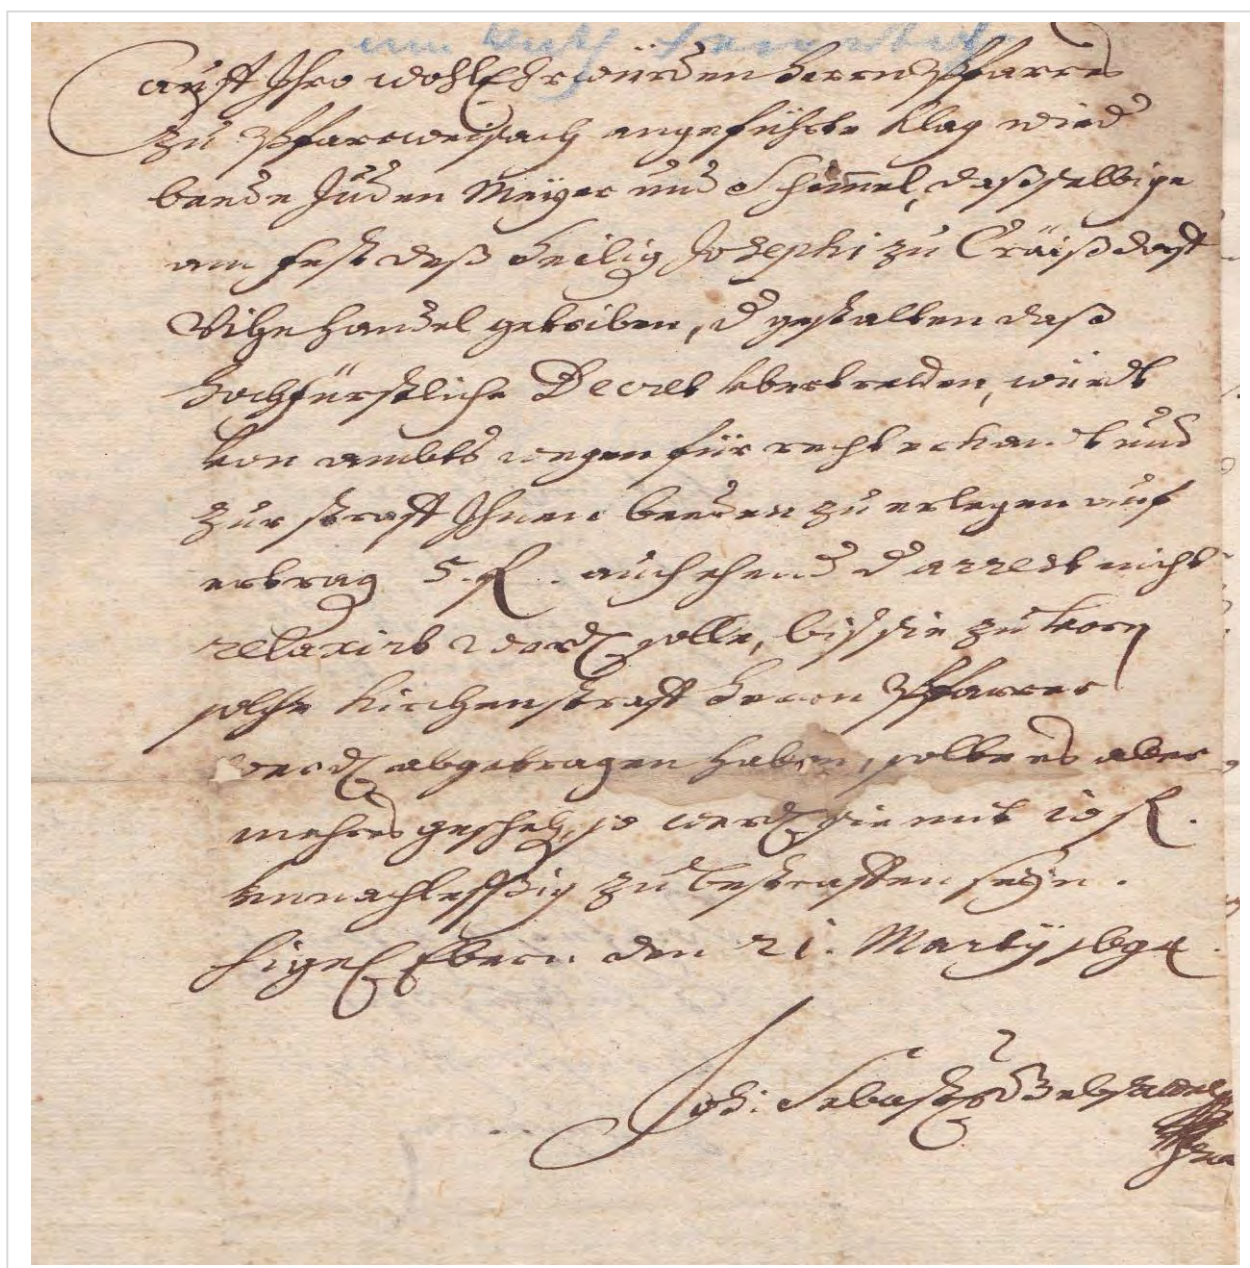 Auff Ihro wohl Ehrwürden Herrn Pfarrers
zu Pfarrweisach angeführte Klag wird
beede Juden Meyer und Schimmel, daß selbige
am fest deß Heilig Josephi zu Craißdorff
Vihe handel getriben, d gestalten daß
Hochfürstliche Decret vbertretten, würdt
von ambts wegen für recht erkandt und
zur straff Ihnen beeden zu erlegen auf
ertrag 5 fl. auch ehend d arrest nicht
relaxirt werd solle, biß sie zuvorn
solche Kirchenstraff Herrn Pfarrer
werd abgetragen haben, solte es aber
mehres gescheh, so werd sie mit 10 fl.
vnnachlessig zu bestraffen seyn.
Sig Ebern den 21. Martij 1694.
Joh: Sebast